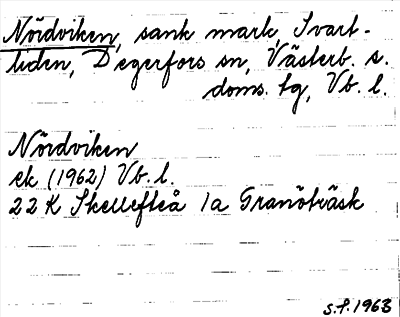 Nördviken, sank mark, Svart-
liden, Degerfors sn, Västerb. s.
doms. tg, Vb. l.
Nördviken
ek (1962) Vb. l.
22 K Skellefteå 1a Granöträsk
S.P. 1963